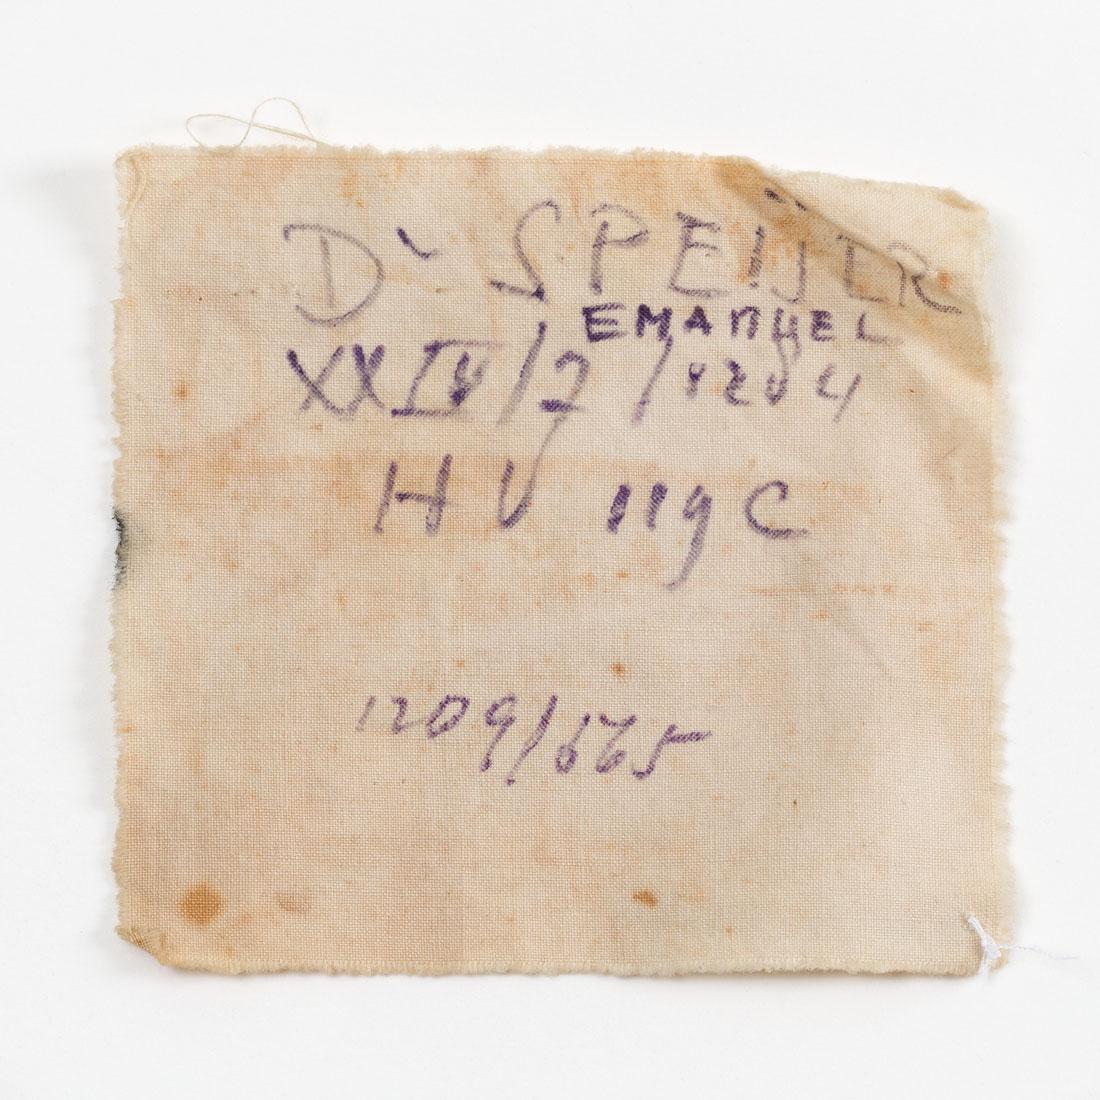 Dr SPEIJER
EMANUEL
XXIV/7 / 1204
HV 119 C
1209/665